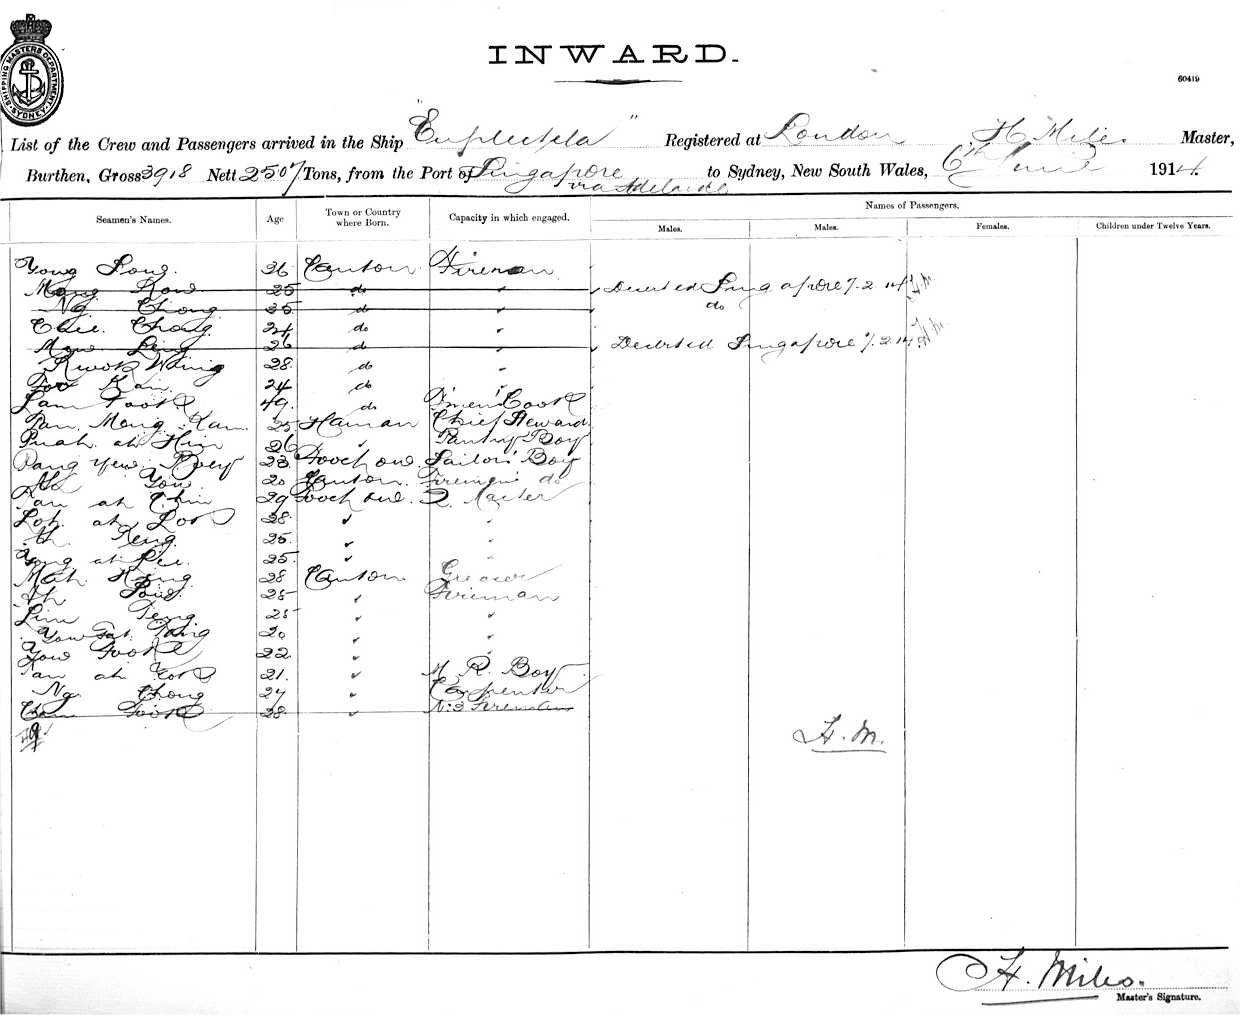 SHIPPING MASTERS DEPARTMENT SYDNEY
INWARD.
60419
List of the Crew and Passengers arrived in the Ship "Euplectela" Registered at London H Miles. Master,
Burthen, Gross 3918 Nett 2507 Tons, from the Port of Singapore to Sydney, New South Wales, 6th June 1914.
via Adelaide
Seamen's Names. Age Town or Country where Born. Capacity in which engaged. Names of Passengers.
Males. Males. Females. Children under Twelve Years.
Yong Song. 26 Canton Fireman
Mong Kow 25 do " Deserted Singapore 7.2.14 H.M.
Ng Chong 35 do " do
Chee Chong 24 do "
Mow Ling 26 do " Deserted Singapore 7.2.14 H.M.
Kwok Wing 28 do "
Foo Kai 24 do "
Lam Fook 49 do F'men's Cook
Tan Mong Kan 25 Hainan Chief Steward
Puah ah Him 26 " Pantry Boy
Pang Yew Boey 23 Foochow Sailors' Boy
Ho You 20 Canton Firemens do
Tan ah Chin 29 Foochow Q. Master
Loh ah Loo 28 " "
Ah Keng 25 " "
Yong ah Pee 25 " "
Mah Kong 28 Canton Greaser
Ah 25 " Fireman
Lim Teng 25 " "
You Fat Tong 20 " "
Yow Fook 22 " "
Tan ah Kok 21. " M R. Boy
Ng Chong 27 " Carpenter
Cham Fook 28 " No 3 Fireman
19
H.M.
H. Miles.
Master's Signature.